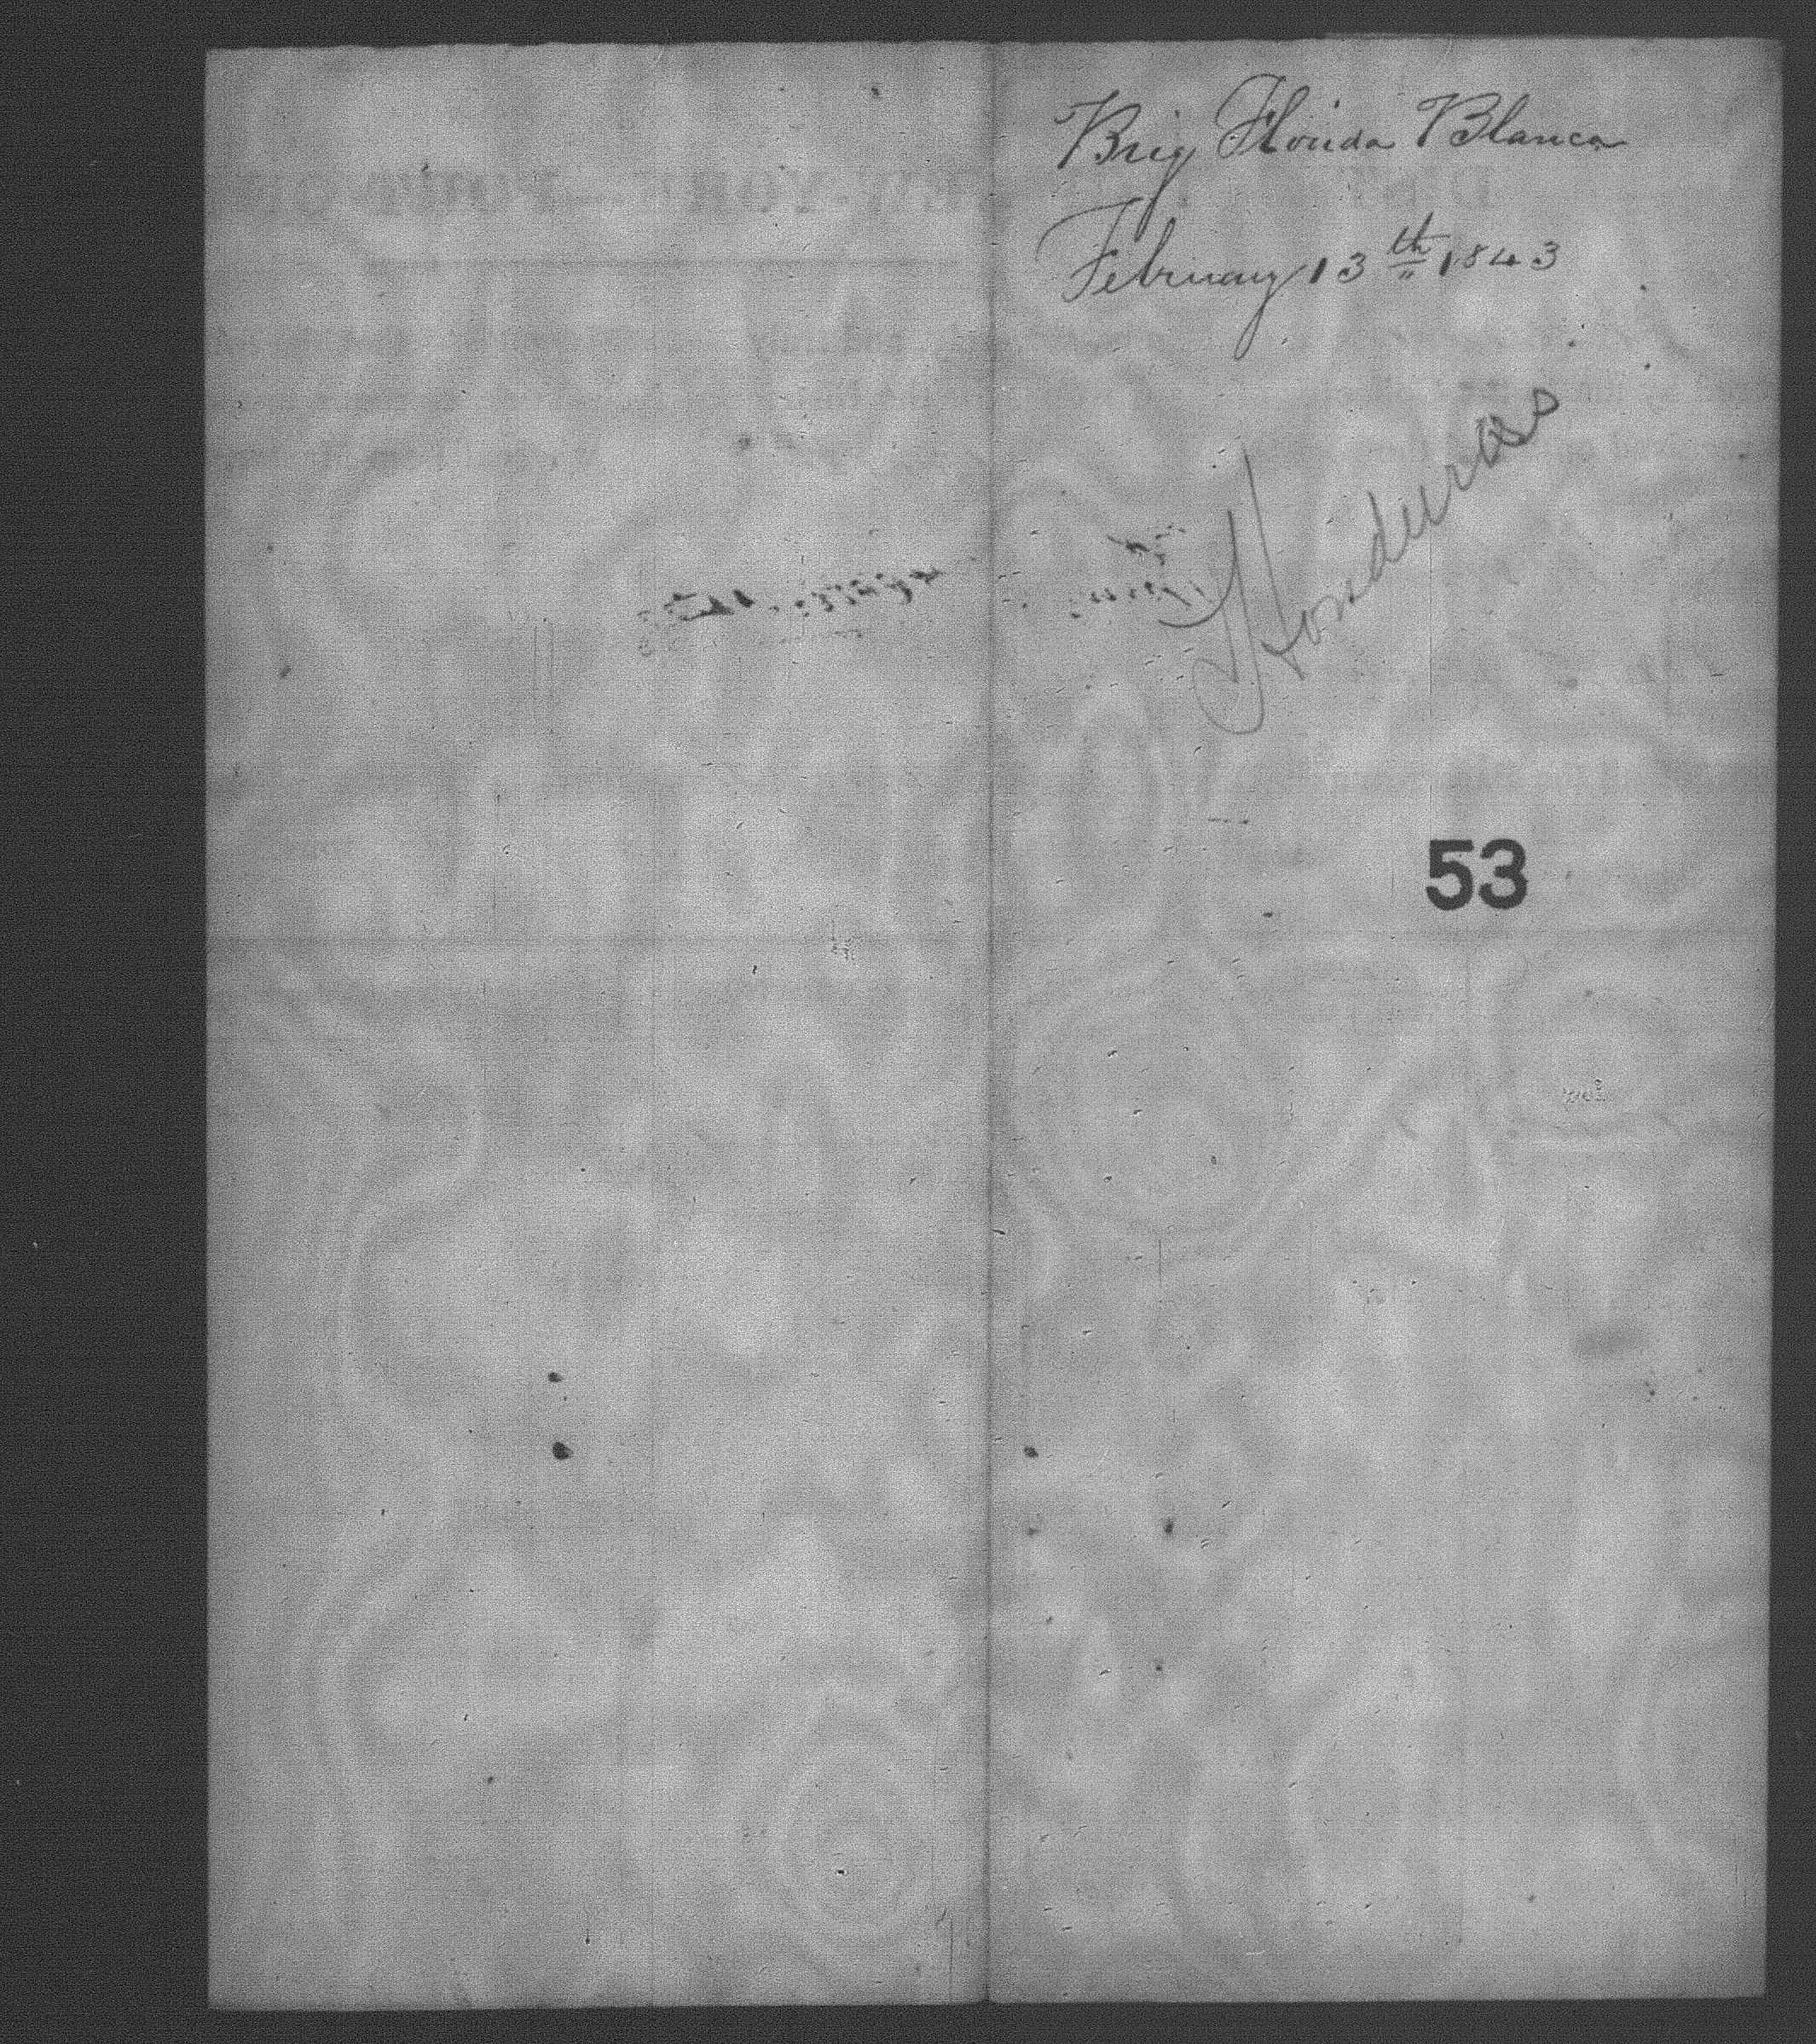 Brig Florida Blanca
February 13th 1843
Honduras
53